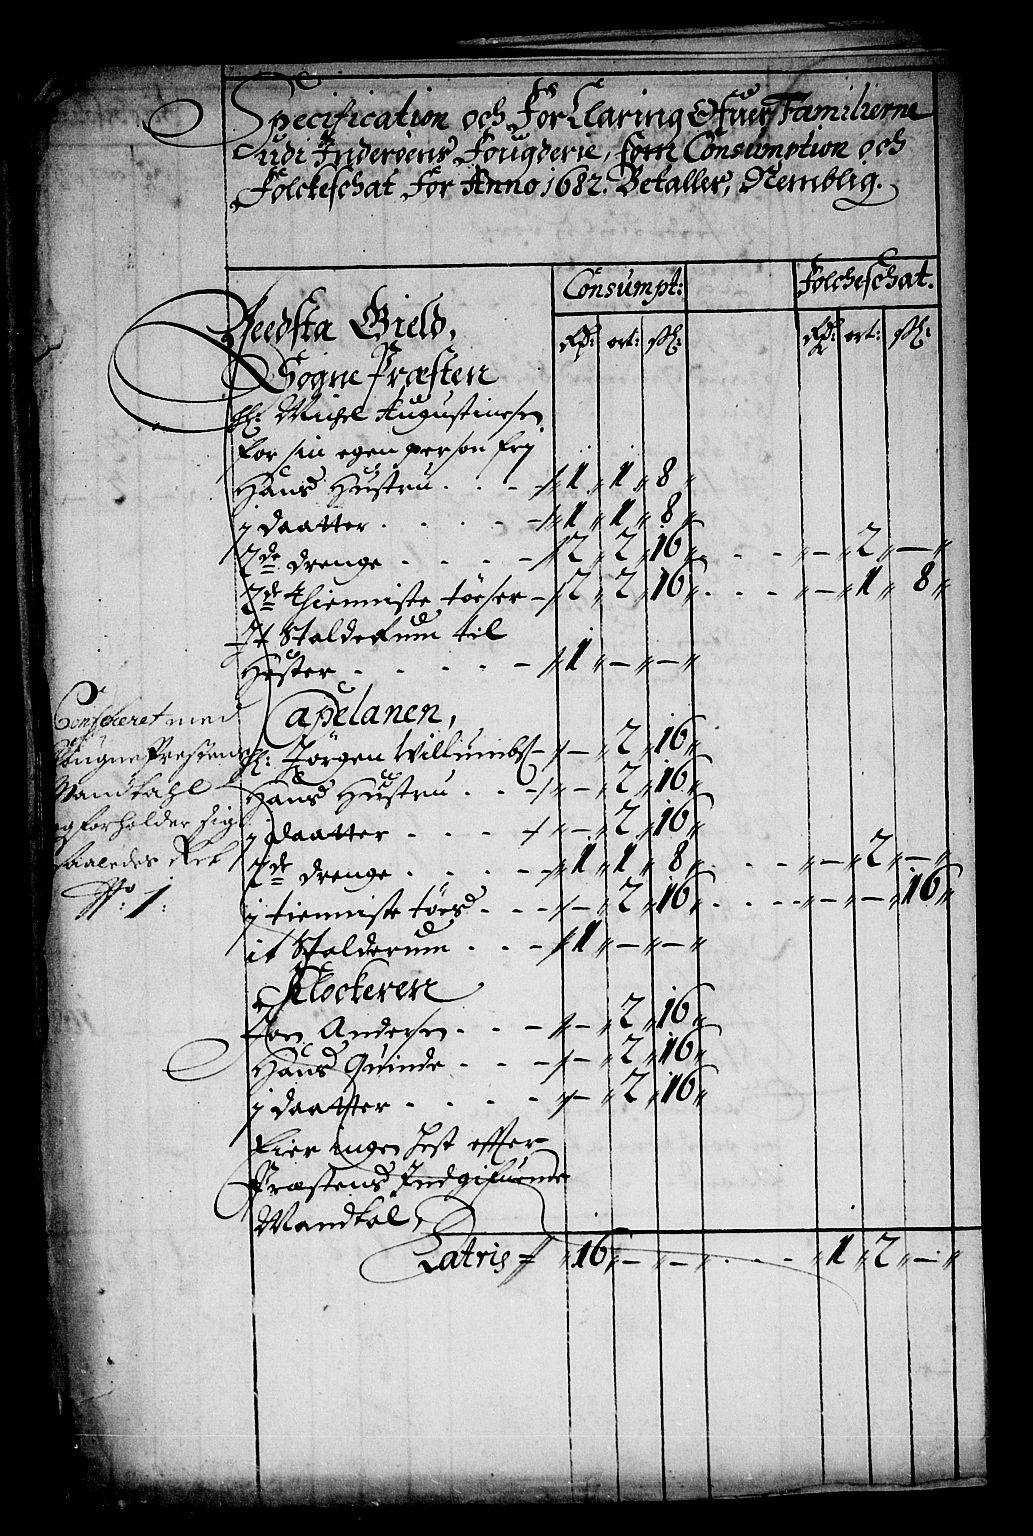 Specification och ForClaring Ofuer Familierne
udi Inderøens Fougderie, som Consumption och
Folckeschat for Anno 1682. Betaller, Nemblig.
Consumpt: Folcheschat.
Rdr: ort: sk: Rdr: ort: sk:
Beedsta Gield,
Sogne Præsten
Hr: Michel Augustinesen
for sin egen person frj
Hans Hustru . . . - 1 „ 1 „ 8 „
j daatter . . . . - 1 „ 1 „ 8 „
2de drenge . . . . - 2 „ 2 „ 16 „ . . . „ - „ 2 „ - „
2de thienniste tøeser - 2 „ 2 „ 16 „ . . . „ - „ 1 „ 8 „
It Stalderum til
Hester . . . . . - „ 1 „ - „ - „
Capelanen,
Hr: Jørgen Willumbs: - „ - „ 2 „ 16 „
Hans Hustru . . . - „ - „ 2 „ 16 „
j daatter . . . . - „ - „ 2 „ 16 „
2de drenge . . . . - „ 1 „ 1 „ 8 „ . . . „ - „ 2 „ - „
j tienniste tøes . . . - „ - „ 2 „ 16 „ . . . „ - „ - „ 16 „
it Stalderum . . . - „ 1 „ - „ - „
Klockeren
Joen Andersen . . . - „ - „ 2 „ 16 „
Hans Quinde . . . - „ - „ 2 „ 16 „
j daatter . . . . - „ - „ 2 „ 16 „
Eier ingen Hest effter
Præstens Indgifuene
Mandtal,
Latris „ 16 „ - „ - „ . . . „ 1 „ 2 „ - „
Confereret med
Sougne Prestens
Mandtahl
og forholder sig
saaledes
No: 1: